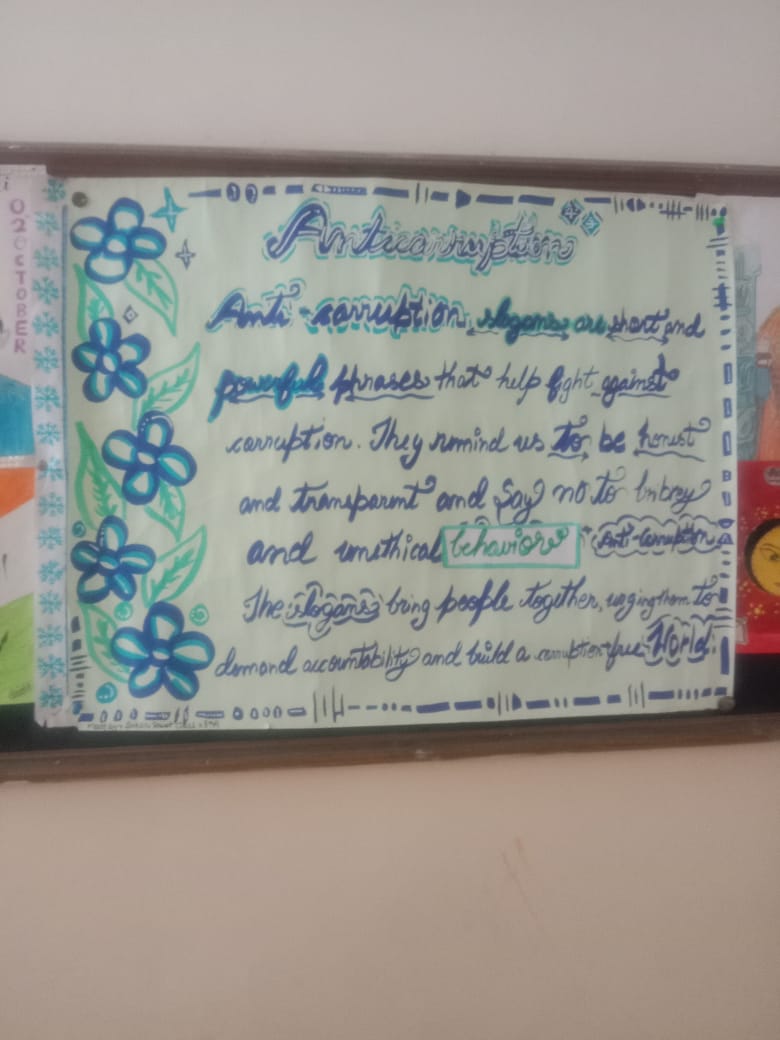 02 OCTOBER
Anticorruption
Anti-corruption, slogans are short and
powerful phrases that help fight against
corruption. They remind us to be honest
and transparent and Say no to bribey
and unethical behaviors Anti-corruption
The slogans bring people together, urging them to
demand accountability and build a corruption-free World.